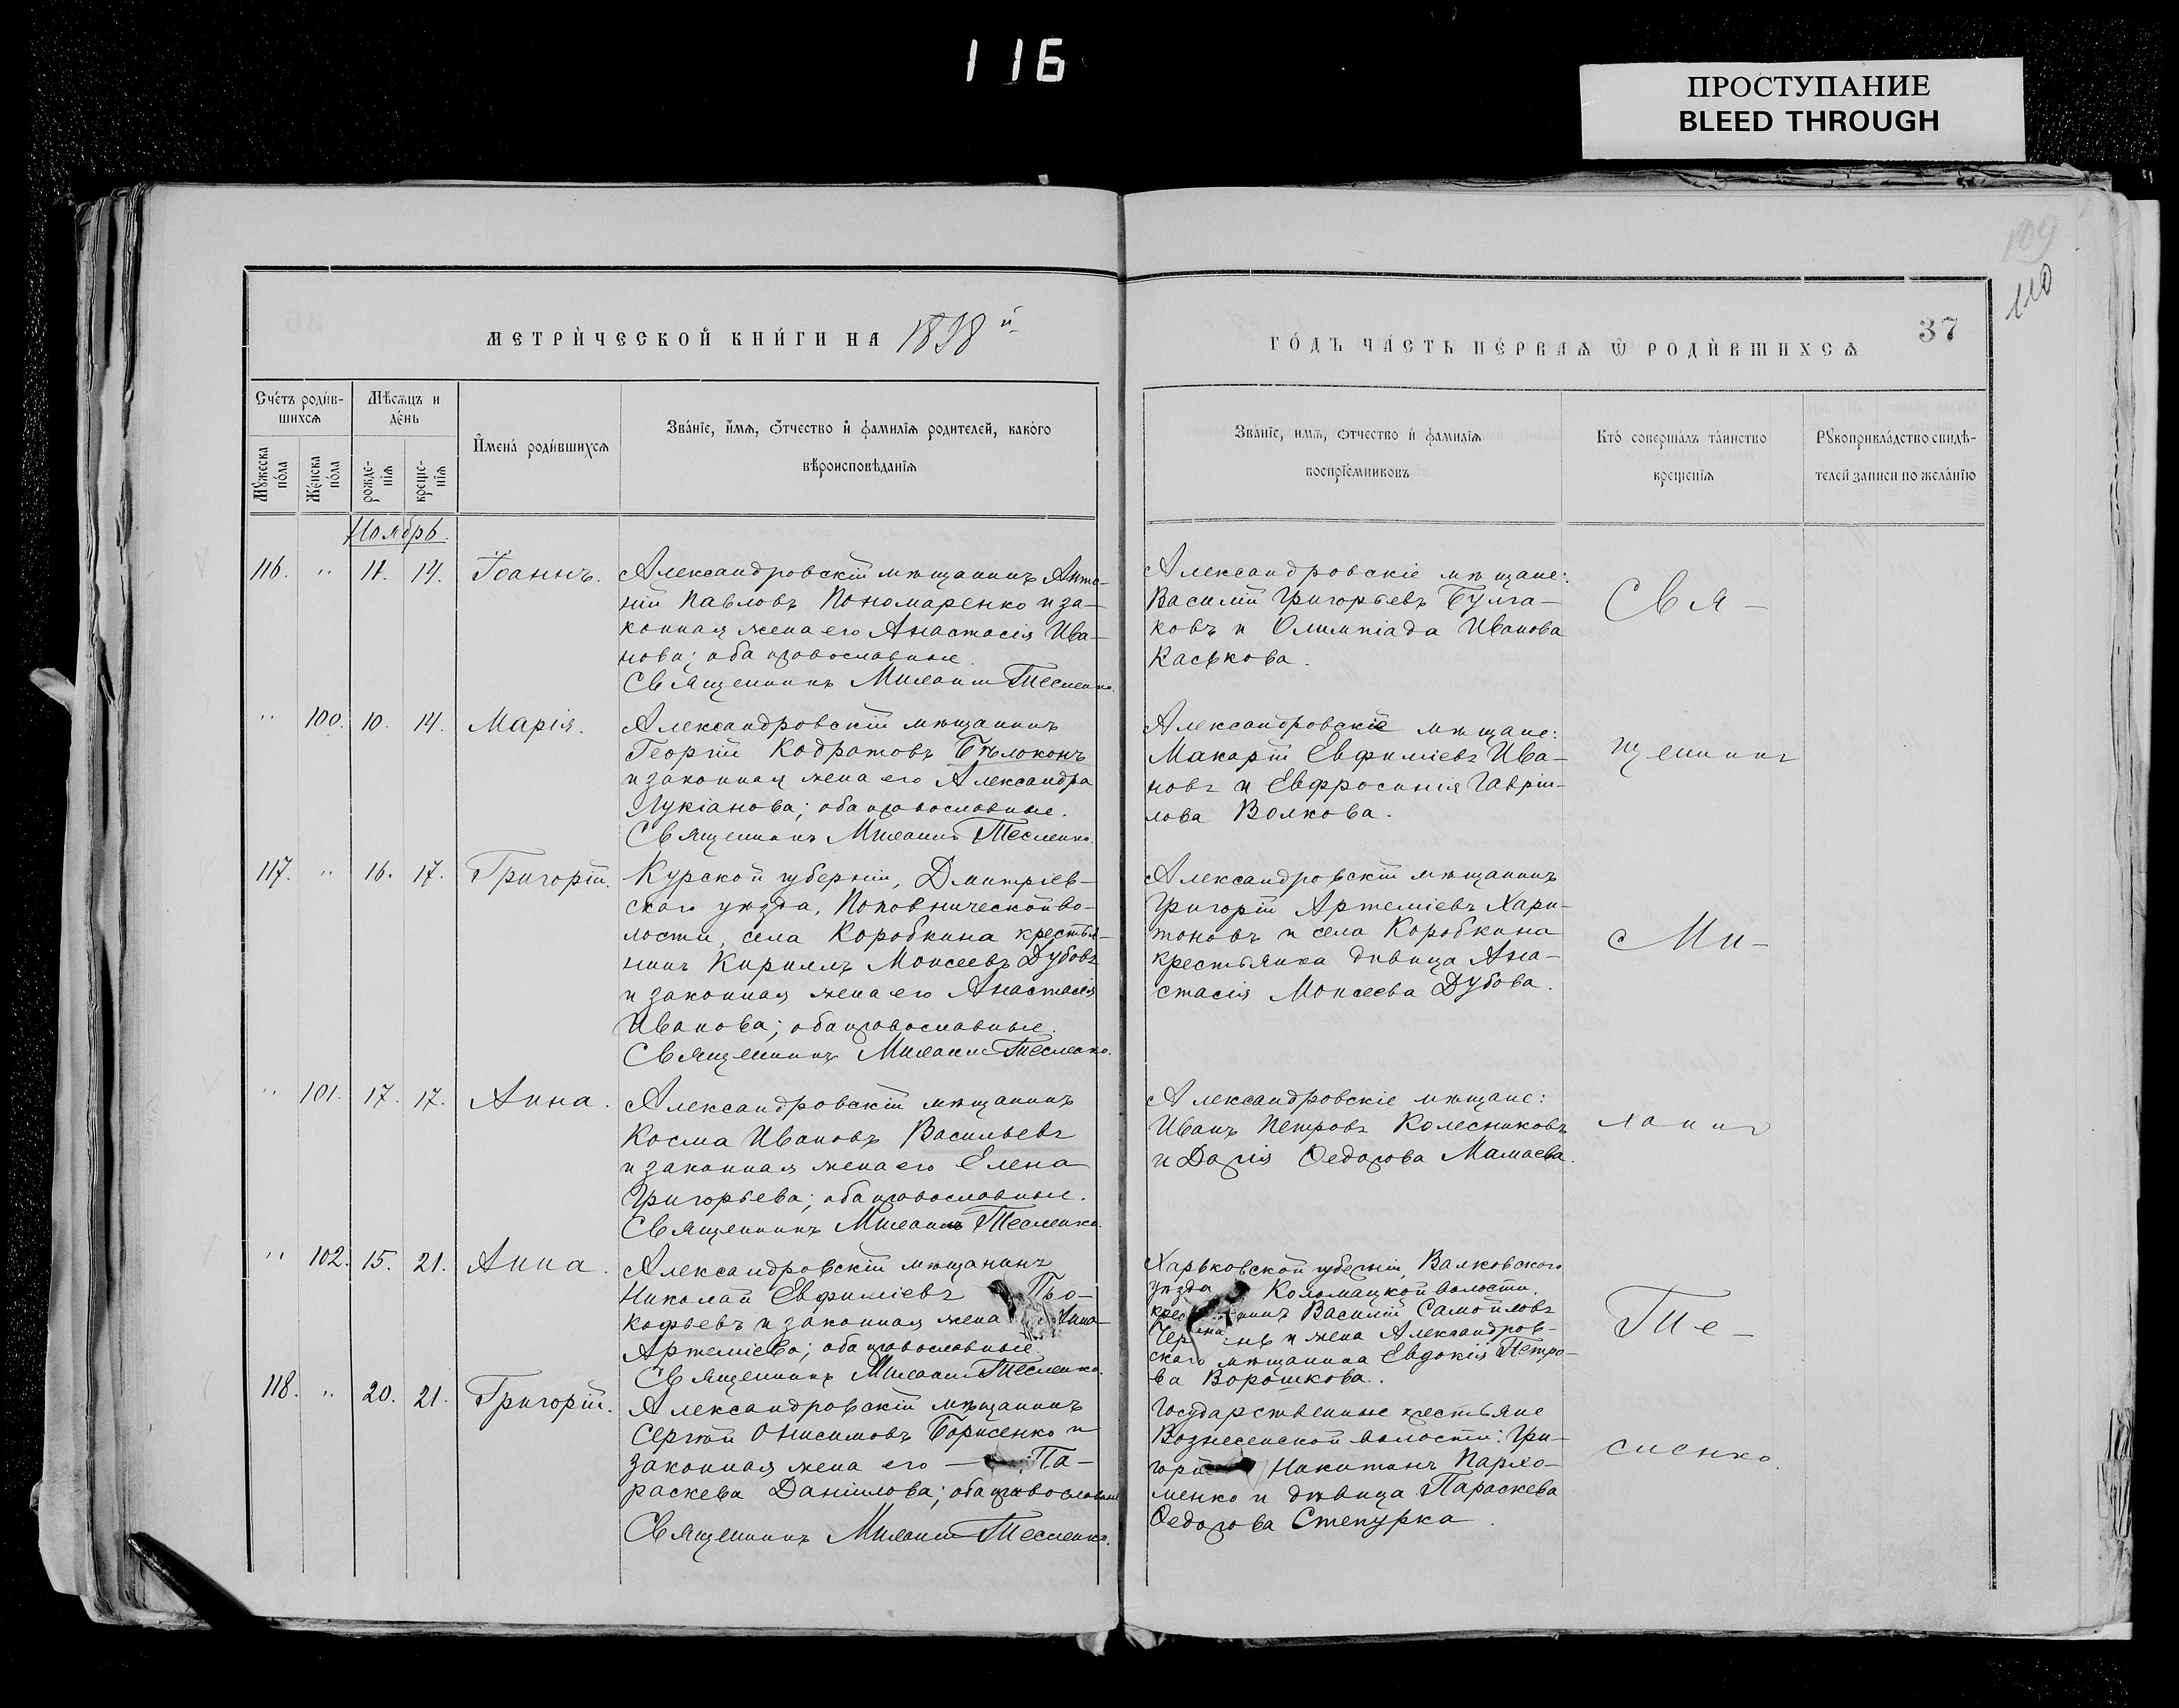 116
ПРОСТУПАНИЕ
BLEED THROUGH
109
110
МЕТРИ́ЧЕСКОЙ КНИ́ГИ НА 1898 й
ГО́ДЪ ЧА́СТЬ ПЕ́РВАѦ Ѡ РОДИ́ВШИХСѦ
37
Сче́тъ роди́в-
шихсѧ
Мѣ́сѧцъ и
де́нь
И҆мена̀ роди́вшихсѧ
Зва́нїе, и҆́мѧ, ѻ҆́тчество и҆ фами́лїѧ роди́телей, како́го
вѣроисповѣ́данїѧ
Мꙋ́жеска
по́ла
Же́нска
по́ла
рожде-
нїѧ
креще-
нїѧ
Зва́нїе, имѧ, ѻтчество и҆ фами́лїѧ
воспрїе́мниковъ
Кто̀ соверша́лъ та́инство
креще́нїѧ
Рꙋкоприкла́дство свидѣ́-
телей записи по жела́нїю
Ноябрь.
116. " 11. 14. Іоаннъ. Александровскій мѣщанинъ Анто-
ній Павловъ Пономаренко и за-
конная жена его Анастасія Ива-
нова; оба православные.
Священникъ Михаилъ Тесленко.
Александровскіе мѣщане:
Василій Григорьевъ Булга-
ковъ и Олимпіада Иванова
Каськова.
Свя-
" 100. 10. 14. Марія. Александровскій мѣщанинъ
Георгій Кодратовъ Бѣлоконь
и законная жена его Александра
Лукіанова; оба православные.
Священникъ Михаилъ Тесленко.
Александровскіе мѣщане:
Макарій Евфиміевъ Ива-
новъ и Евфросинія Гаврии-
лова Волкова.
щенникъ
117. " 16. 17. Григорій. Курской губерніи, Дмитріев-
скаго уѣзда, Поповнической во-
лости, села Коробкина крестья-
нинъ Кириллъ Моисеевъ Дубовъ
и законная жена его Анастасія
Иванова; оба православные.
Священникъ Михаилъ Тесленко.
Александровскій мѣщанинъ
Григорій Артеміевъ Хари-
тоновъ и села Коробкина
крестьянка дѣвица Ана-
стасія Моисеева Дубова.
Ми-
" 101. 17. 17. Анна. Александровскій мѣщанинъ
Косма Ивановъ Васильевъ
и законная жена его Елена
Григорьева; оба православные.
Священникъ Михаилъ Тесленко.
Александровскіе мѣщане:
Иванъ Петровъ Колесниковъ
и Дарія Ѳедорова Мамаева.
хаилъ
" 102. 15. 21. Анна. Александровскій мѣщанинъ
Николай Евфиміевъ Про-
кофьевъ и законная жена Анна
Артеміева; оба православные.
Священникъ Михаилъ Тесленко.
Харьковской губерніи, Валковскаго
уѣзда Коломацкой волости,
Василій Самойловъ
и жена Александров-
скаго мѣщанина Евдокія Петро-
ва Ворошкова.
Те-
118. " 20. 21. Григорій. Александровскій мѣщанинъ
Сергій Онисимовъ Борисенко и
законная жена его — Па-
раскева Даніилова; оба православные
Священникъ Михаилъ Тесленко.
Государственные крестьяне
Вознесенской волости: Гри-
горій Никитинъ Пархо-
менко и дѣвица Параскева
Ѳедорова Степурка.
сленко.